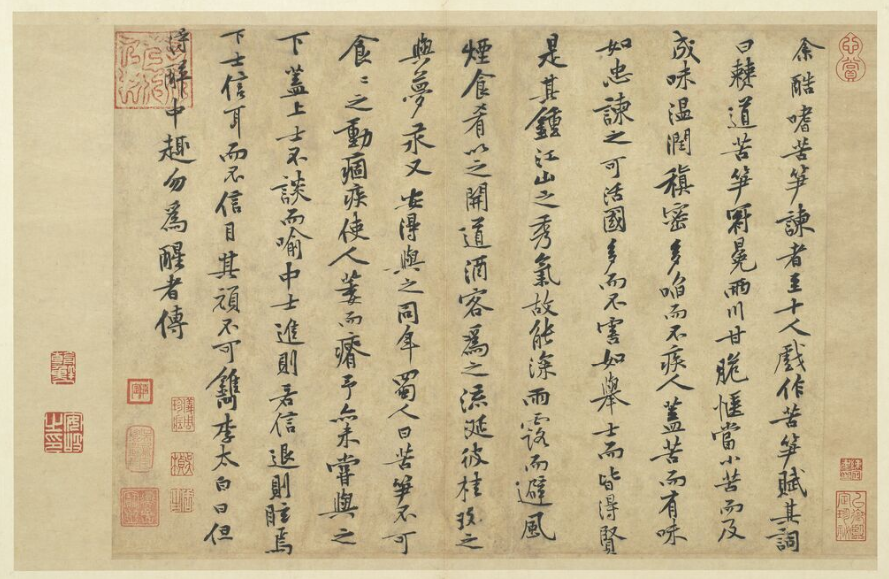 心賞
余酷嗜苦笋諫者至十人戲作苦笋賦其詞
曰僰道苦笋冠冕兩川甘脆愜當小苦而及
成味温潤稹密多啗而不疾人蓋苦而有味
如忠諫之可活國多而不害如舉士而皆得賢
是其鍾江山之秀氣故能深雨露而避風
煙食肴以之開道酒客爲之流涎彼桂玫之
與夢汞又安得與之同年蜀人曰苦笋不可
食〻之動痼疾使人萎而瘠予亦未嘗與之
下蓋上士不談而喻中士進則若信退則眩焉
下士信耳而不信目其頑不可鐫李太白曰但
得醉中趣勿爲醒者傳
儀周珍藏
安岐之印